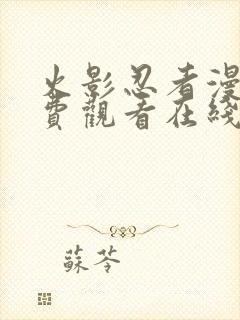 火影忍者漫
費觀看在綫
蘇苓